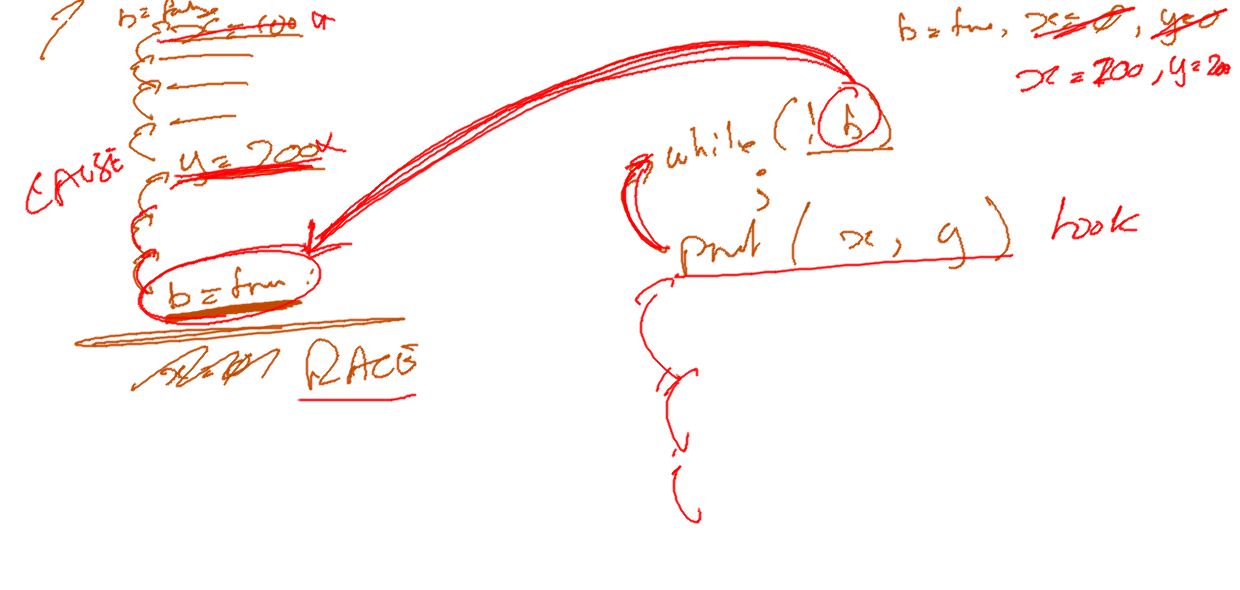 b = false
x = 100
y = 200
CAUSE
b = true ;
RACE
b = true, x = 0, y = 0
x = 200, y = 200
while ( ! b )
;
print ( x, y )